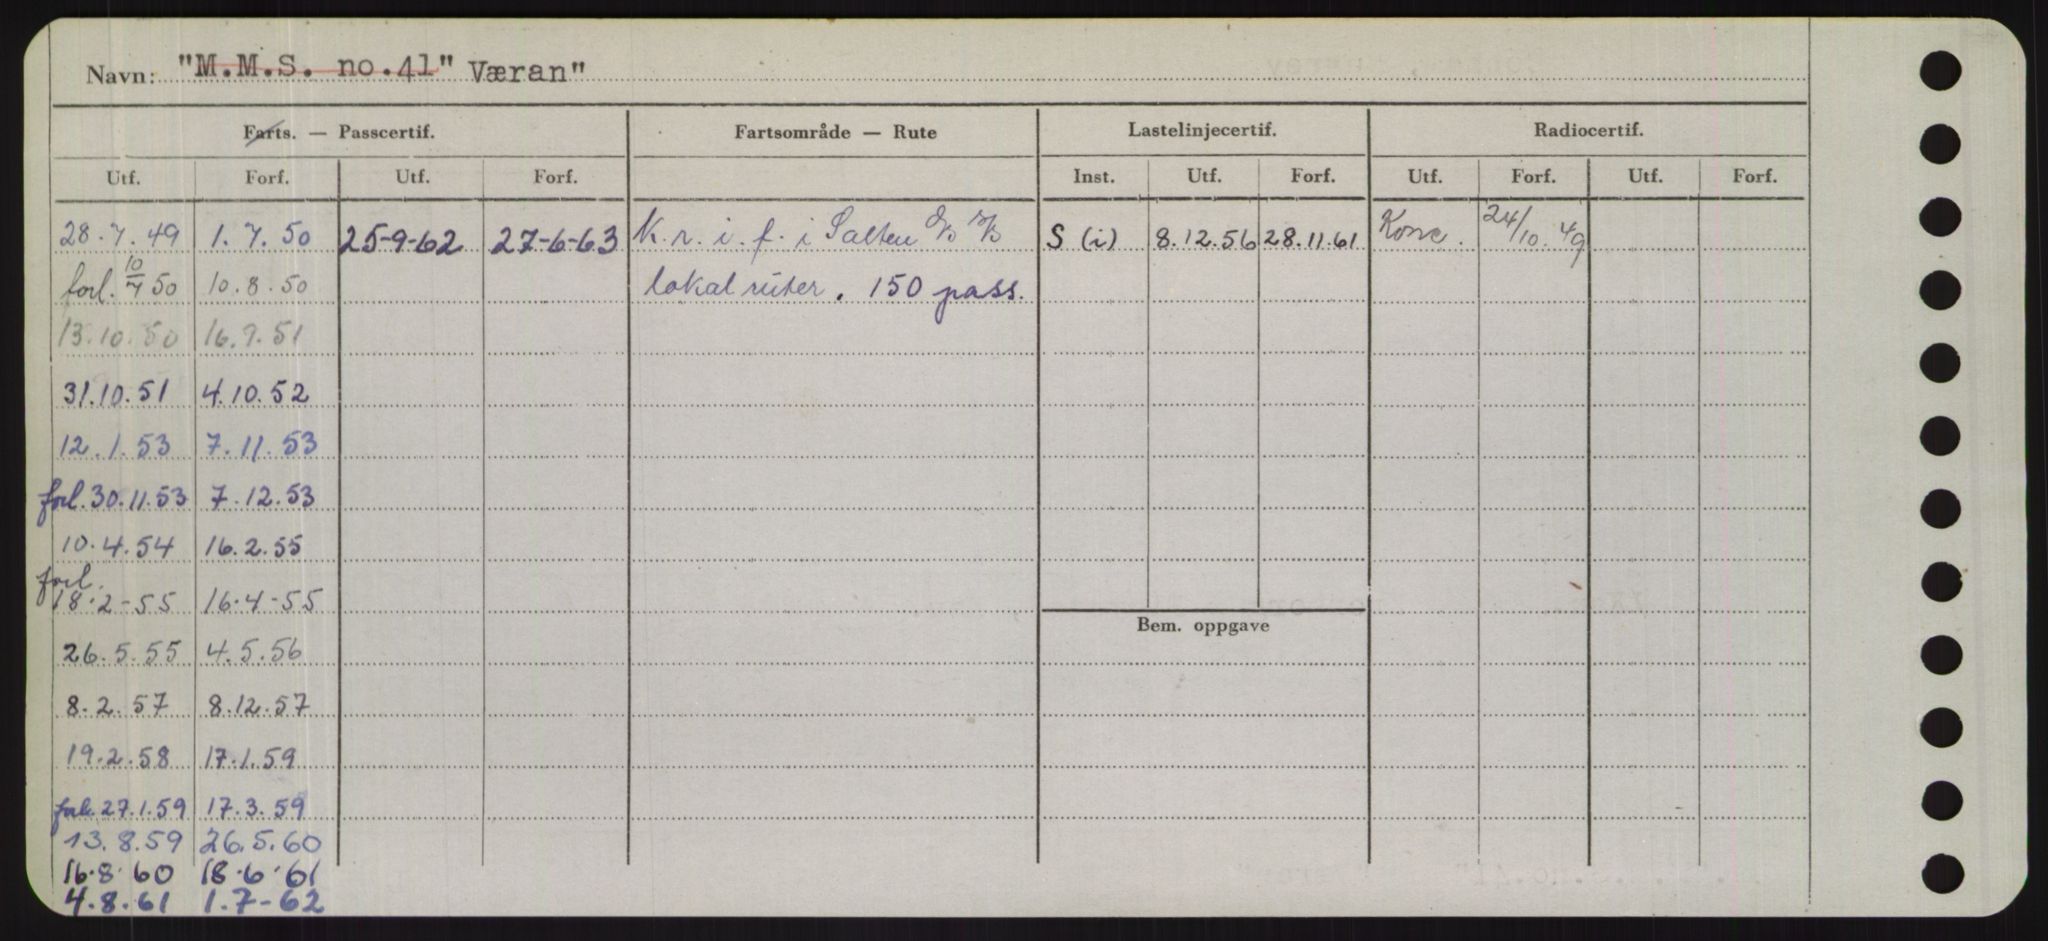 Navn: "M.M.S. no.41" Væran"
Farts. — Passcertif. Fartsområde — Rute Lastelinjecertif. Radiocertif.
Utf. Forf. Utf. Forf. Inst. Utf. Forf. Utf. Forf. Utf. Forf.
28.7.49 1.7.50 25-9-62 27-6-63 K.r.i.f. i Salten S (i) 8.12.56 28.11.61 24/10.49
forl. 10/7 50 10.8.50 lokalruter. 150 pass.
13.10.50 16.9.51
31.10.51 4.10.52
12.1.53 7.11.53
forl. 30.11.53 7.12.53
10.4.54 16.2.55
forl.
18.2-55 16.4-55
Bem. oppgave
26.5.55 4.5.56
8.2.57 8.12.57
19.2.58 17.1.59
forl. 27.1.59 17.3.59
13.8.59 26.5.60
16.8.60 18.6.61
4.8.61 1.7-62